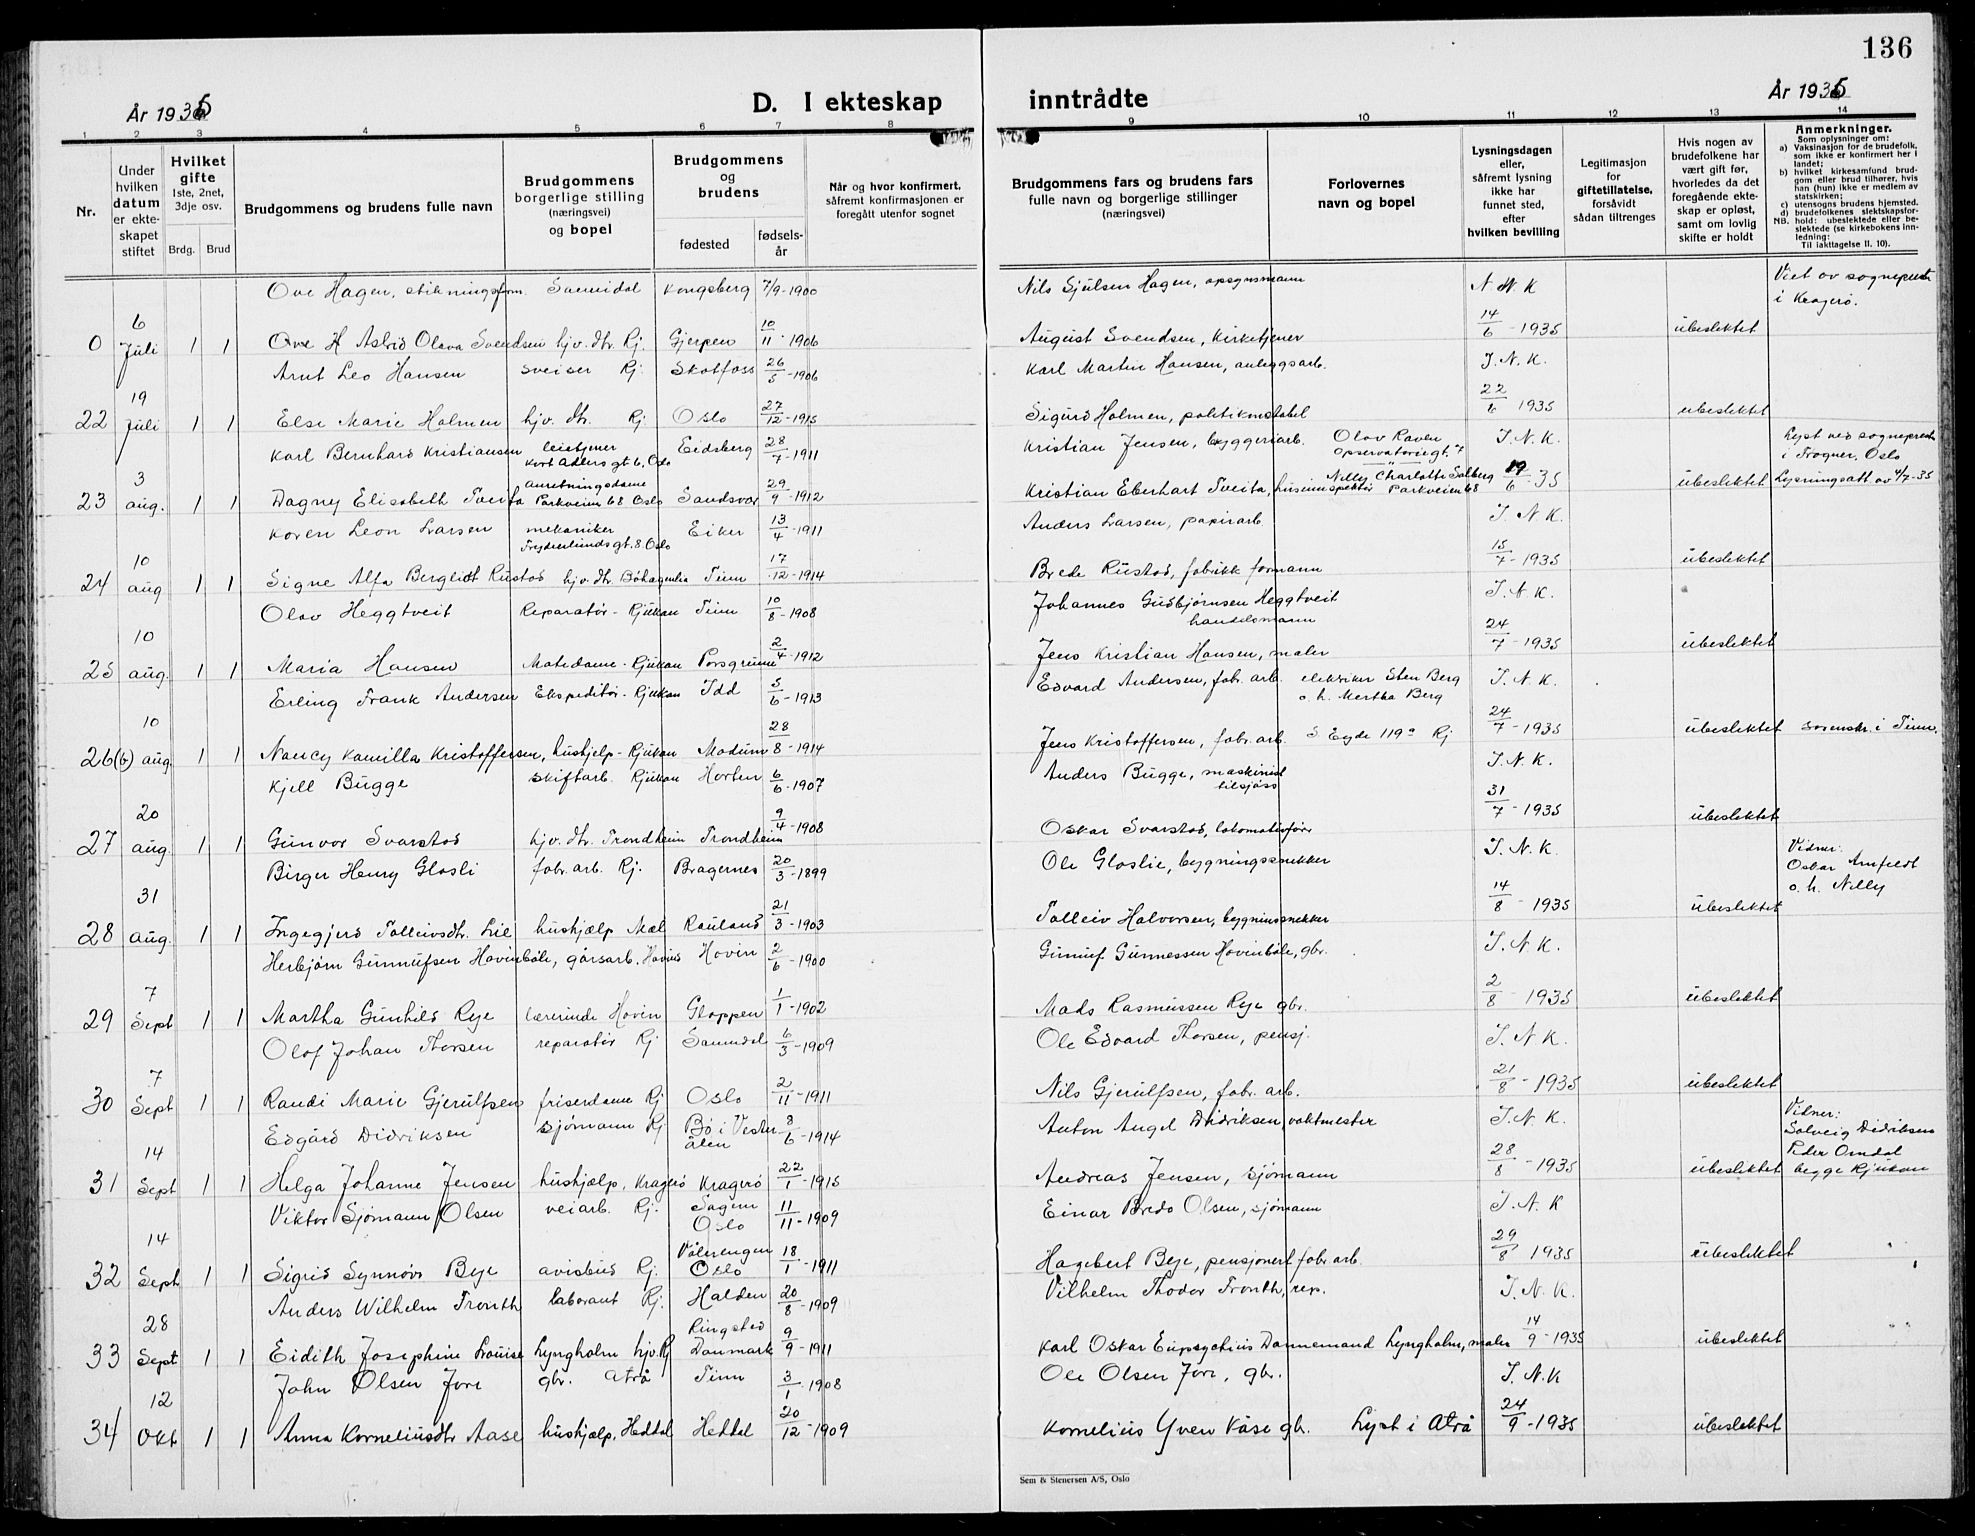 136
År 1935
D. I ekteskap inntrådte
År 1935
1 2 3 4 5 6 7 8 9 10 11 12 13 14
Nr.
Under hvilken datum er ekteskapet stiftet
Hvilket gifte 1ste, 2net, 3dje osv.
Brdg. Brud
Brudgommens og brudens fulle navn
Brudgommens borgerlige stilling (næringsvei) og bopel
Brudgommens og brudens
fødested
fødselsår
Når og hvor konfirmert, såfremt konfirmasjonen er foregått utenfor sognet
Brudgommens fars og brudens fars fulle navn og borgerlige stillinger (næringsvei)
Forlovernes navn og bopel
Lysningsdagen eller, såfremt lysning ikke har funnet sted, efter hvilken bevilling
Legitimasjon for giftetillatelse, forsåvidt sådan tiltrenges
Hvis nogen av brudefolkene har vært gift før, hvorledes da det foregående ekteskap er opløst, samt om lovlig skifte er holdt
Anmerkninger.
Som oplysninger om:
a) Vaksinasjon for de brudefolk, som ikke er konfirmert her i landet;
b) hvilket kirkesamfund brudgom eller brud tilhører, hvis han (hun) ikke er medlem av statskirken;
c) utensogns brudens hjemsted.
d) brudefolkenes slektskapsforhold: ubeslektede eller beslektede (se kirkebokens innledning:
NB.
Til iakttagelse II. 10).
Ove Hagen, stikningsform. Sannidal Kongsberg 7/9-1900 Nils Sjulsen Hagen, opsynsmann N. K Viet av sogneprest i Kragerø.
0 6 Juli 1 1 Ove H Astrid Olava Svendsen hjv. dtr. Rj. Gjerpen 10/11-1906 August Svendsen, kirketjener 14/6-1935 ubeslektet
Arnt Leo Hansen sveiser Rj. Skotfoss 26/5-1906 Karl Martin Hansen, anleggsarb. I. N. K.
22 19 Juli 1 1 Else Marie Holmen hjv. dtr. Rj. Oslo 27/12-1915 Sigurd Holmen, politikonstabel 22/6 1935 ubeslektet
Karl Bernhard Kristiansen Kort Adlers gt 6, Oslo Eidsberg 28/7-1911 Kristian Jensen, byggeriarb. Olav Raven Observatoriegt. I. N. K. Lyst ved sogneprest i Frogner, Oslo
23 3 aug. 1 1 Dagny Elisabeth Tveita Anretningsdame Parkveien 68 Oslo Sandsvær 29/9-1912 Kristian Eberhart Tveita, husinspektør Nilly Charlotte Solberg Parkveien 68 19/6-35 ubeslektet Lysningsatt. av 4/7-35
Koren Leon Larsen mekaniker Frydenlundsgt. 8. Oslo Eiker 13/4-1911 Anders Larsen, papirarb. I. N. K.
24 10 aug 1 1 Signe Alfa Bergliot Rustad hjv. dtr. Tinn 17/12-1914 Brede Rustad, fabrikk formann 15/7-1935 ubeslektet
Olav Heggtveit Reparatør-Rjukan Tinn 10/8-1908 Johannes Gudbjørnsen Heggtveit handelsmann I. N. K.
25 10 aug. 1 1 Maria Hansen Matdame-Rjukan Porsgrunn 2/4-1912 Jens Kristian Hansen, maler 24/7-1935 ubeslektet
Erling Frank Andersen Ekspeditør-Rjukan Idd 5/6-1913 Edvard Andersen, fabr. arb. elektriker Sten Berg o. h. Martha Berg I. N. K.
26(b) 10 aug. 1 1 Nancy Kamilla Kristoffersen, hushjelp-Rjukan Modum 28/8-1914 Jens Kristoffersen, fabr. arb. S. Eyde 119 a Rj 24/7-1935 ubeslektet sorenskr. i Tinn.
Kjell Bugge skiftarb. Rjukan Horten 6/6-1907 Anders Bugge, maskinist tilsjøss I. N. K.
27 20 aug. 1 1 Gunvor Svarstad hjv. dtr. Trondheim Trondheim 9/4-1908 Oskar Svarstad, lokomotivfører 31/7-1935 ubeslektet
Birger Henry Glosli fabr. arb. Rj. Bragernes 20/3-1899 Ole Gloslie, bygningssnekker I. N. K. Vidner: Oskar Arnfeldt o. h. Nelly
28 31 aug. 1 1 Ingegjerd Tolleivsdtr. Lie hushjelp Mæl Rauland 21/3-1903 Tolleiv Halvorsen, bygningssnekker 14/8-1935 ubeslektet
Herbjørn Gunnufsen Hovinbøle, gårdsarb. Hovin Hovin 2/6-1900 Gunnuf Gunnessen Hovinbøle, gbr. I. N. K.
29 7 Sept 1 1 Martha Gunhild Rye lærerinde Hovin Gloppen 1/1-1902 Mads Rasmussen Rye gbr. 2/8-1935 ubeslektet
Olof Johan Thorsen reparatør Rj. 6/3-1909 Ole Edvard Thorsen, pensj. I. N. K.
30 7 Sept 1 1 Randi Marie Gjerulfsen friserdame Rj Oslo 2/11-1911 Nils Gjerulfsen, fabr. arb. 21/8-1935 ubeslektet
Edgård Didriksen sjømann Rj Bø i Vesterålen 8/6-1914 Anton Angel Didriksen vaktmester I. N. K. Vidner: Solveig Didriksen Peder Omdal begge Rjukan
31 14 Sept 1 1 Helga Johanne Jensen hushjelp, Kragerø Kragerø 22/1-1915 Andreas Jensen, sjømann 28/8-1935 ubeslektet
Viktor Sjømann Olsen veiarb. Rj. Sagene Oslo 11/11-1909 Einar Bredo Olsen, sjømann I. N. K
32 14 Sept 1 1 Sigrid Synnøve Beje avisbud Rj. Vålerengen Oslo 18/1-1911 Hagebert Beje, pensjonert fabr. arb. 29/8 1935 ubeslektet
Anders Wilhelm Tronth laborant Rj. Halden 20/8-1909 Vilhelm Thodor Tronth, rep. I. N. K.
33 28 Sept 1 1 Eidith Josephine Louise Lyngholm hjv. Rj Ringsted Danmark 9/9-1911 Karl Oskar Eupsychius Dannemand Lyngholm, maler 14/9-1935 ubeslektet
John Olsen Jore gbr. Atrå Tinn 3/1-1908 Ole Olsen Jore, gbr. I. N. K
34 12 Okt 1 1 Anna Korneliusdtr Aase hushjelp, Heddal Heddal 20/12-1909 Kornelius Yven Våse gbr. Lyst i Atrå 24/9-1935 ubeslektet
Sem & Stenersen A/S, Oslo